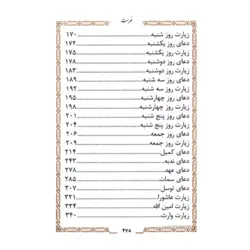 فهرست
زیارت روز شنبه ۱۷۰
دعای روز یکشنبه ۱۷۲
زیارت روز یکشنبه ۱۷۵
دعای روز دوشنبه ۱۷۸
زیارت روز دوشنبه ۱۸۳
دعای روز سه شنبه ۱۸۵
زیارت روز سه شنبه ۱۹۲
دعای روز چهارشنبه ۱۹۵
زیارت روز چهارشنبه ۱۹۸
دعای روز پنج شنبه ۲۰۱
زیارت روز پنج شنبه ۲۰۴
دعای روز جمعه ۲۰۶
زیارت روز جمعه ۲۰۹
دعای کمیل ۲۱۴
دعای ندبه ۲۴۳
دعای عهد ۲۷۸
دعای سمات ۲۸۵
دعای توسل ۳۰۷
زیارت عاشورا ۳۲۱
زیارت امین الله ۳۳۴
زیارت وارث ۳۴۰
۴۷۸